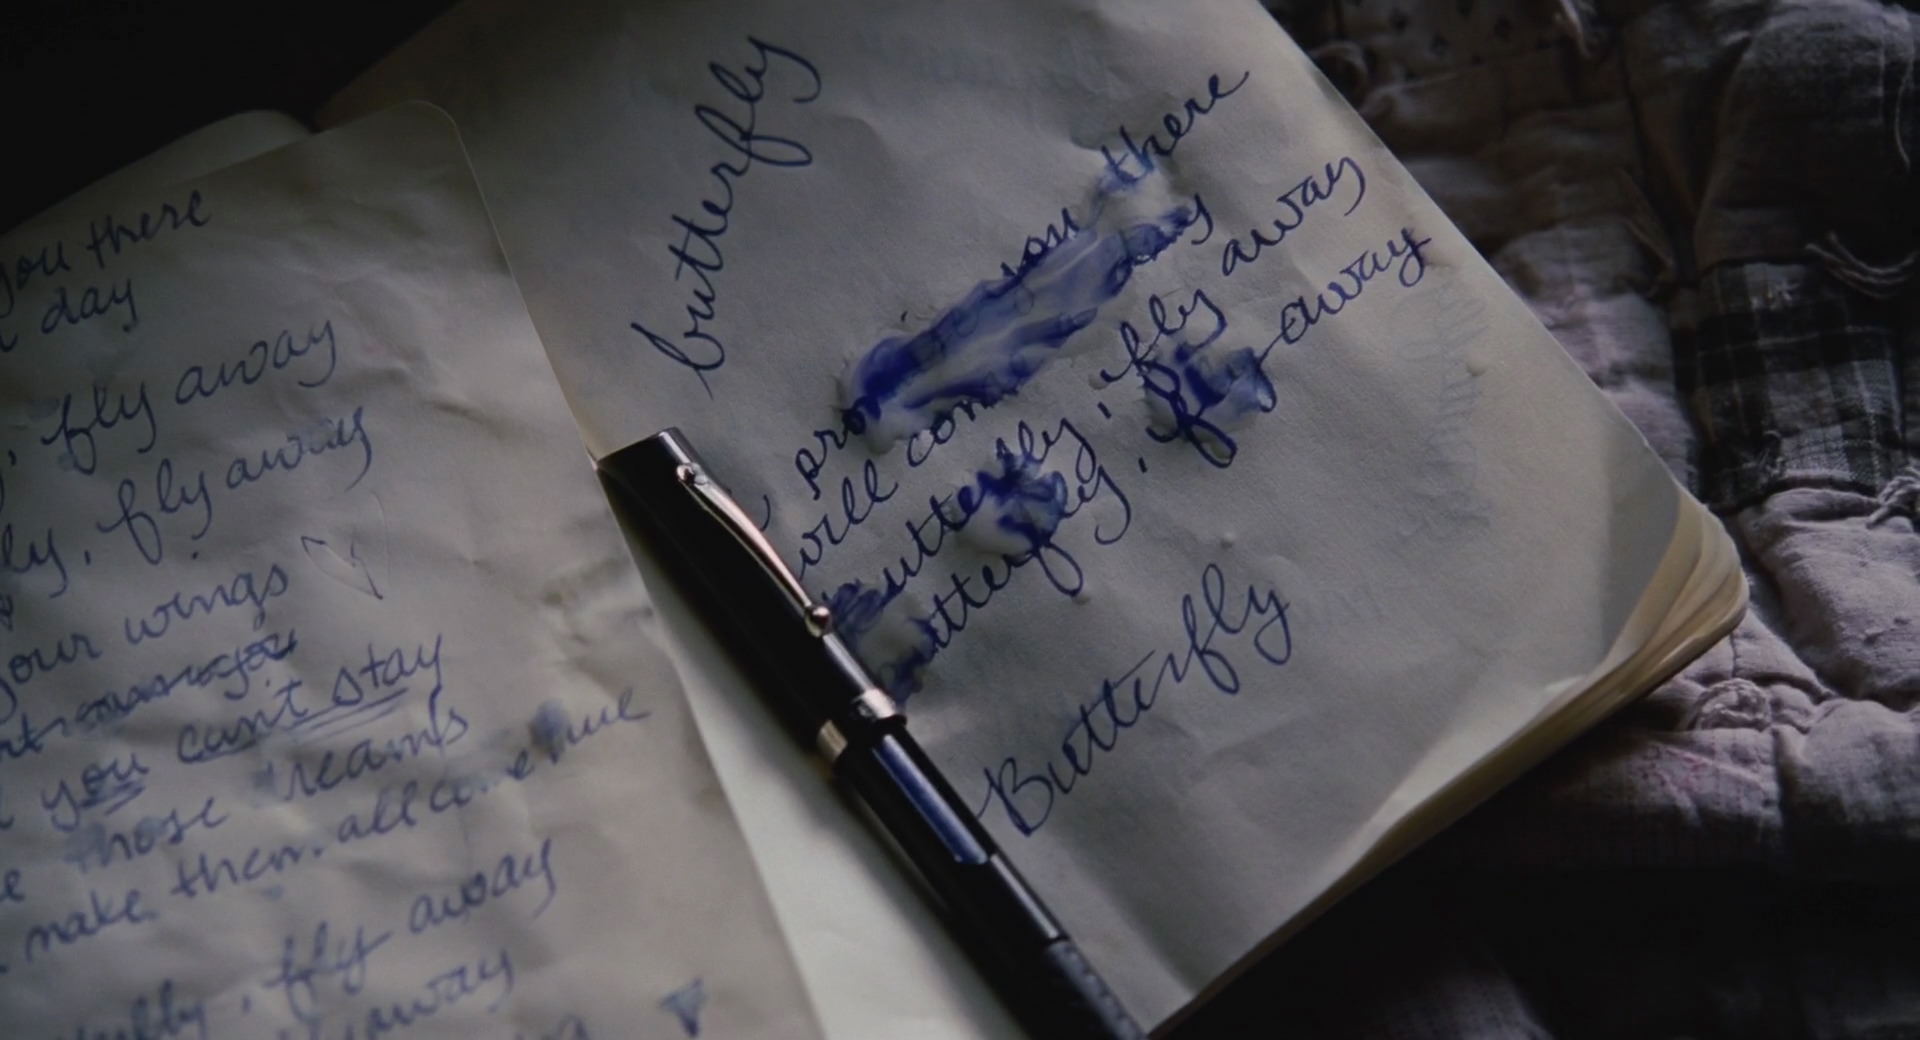 you there
day
, fly away
ly, fly away
your wings
you can't stay
those reams
make them all come true
, fly away
away
butterfly
you there
will day
butterfly, fly away
butterfly, fly away
Butterfly